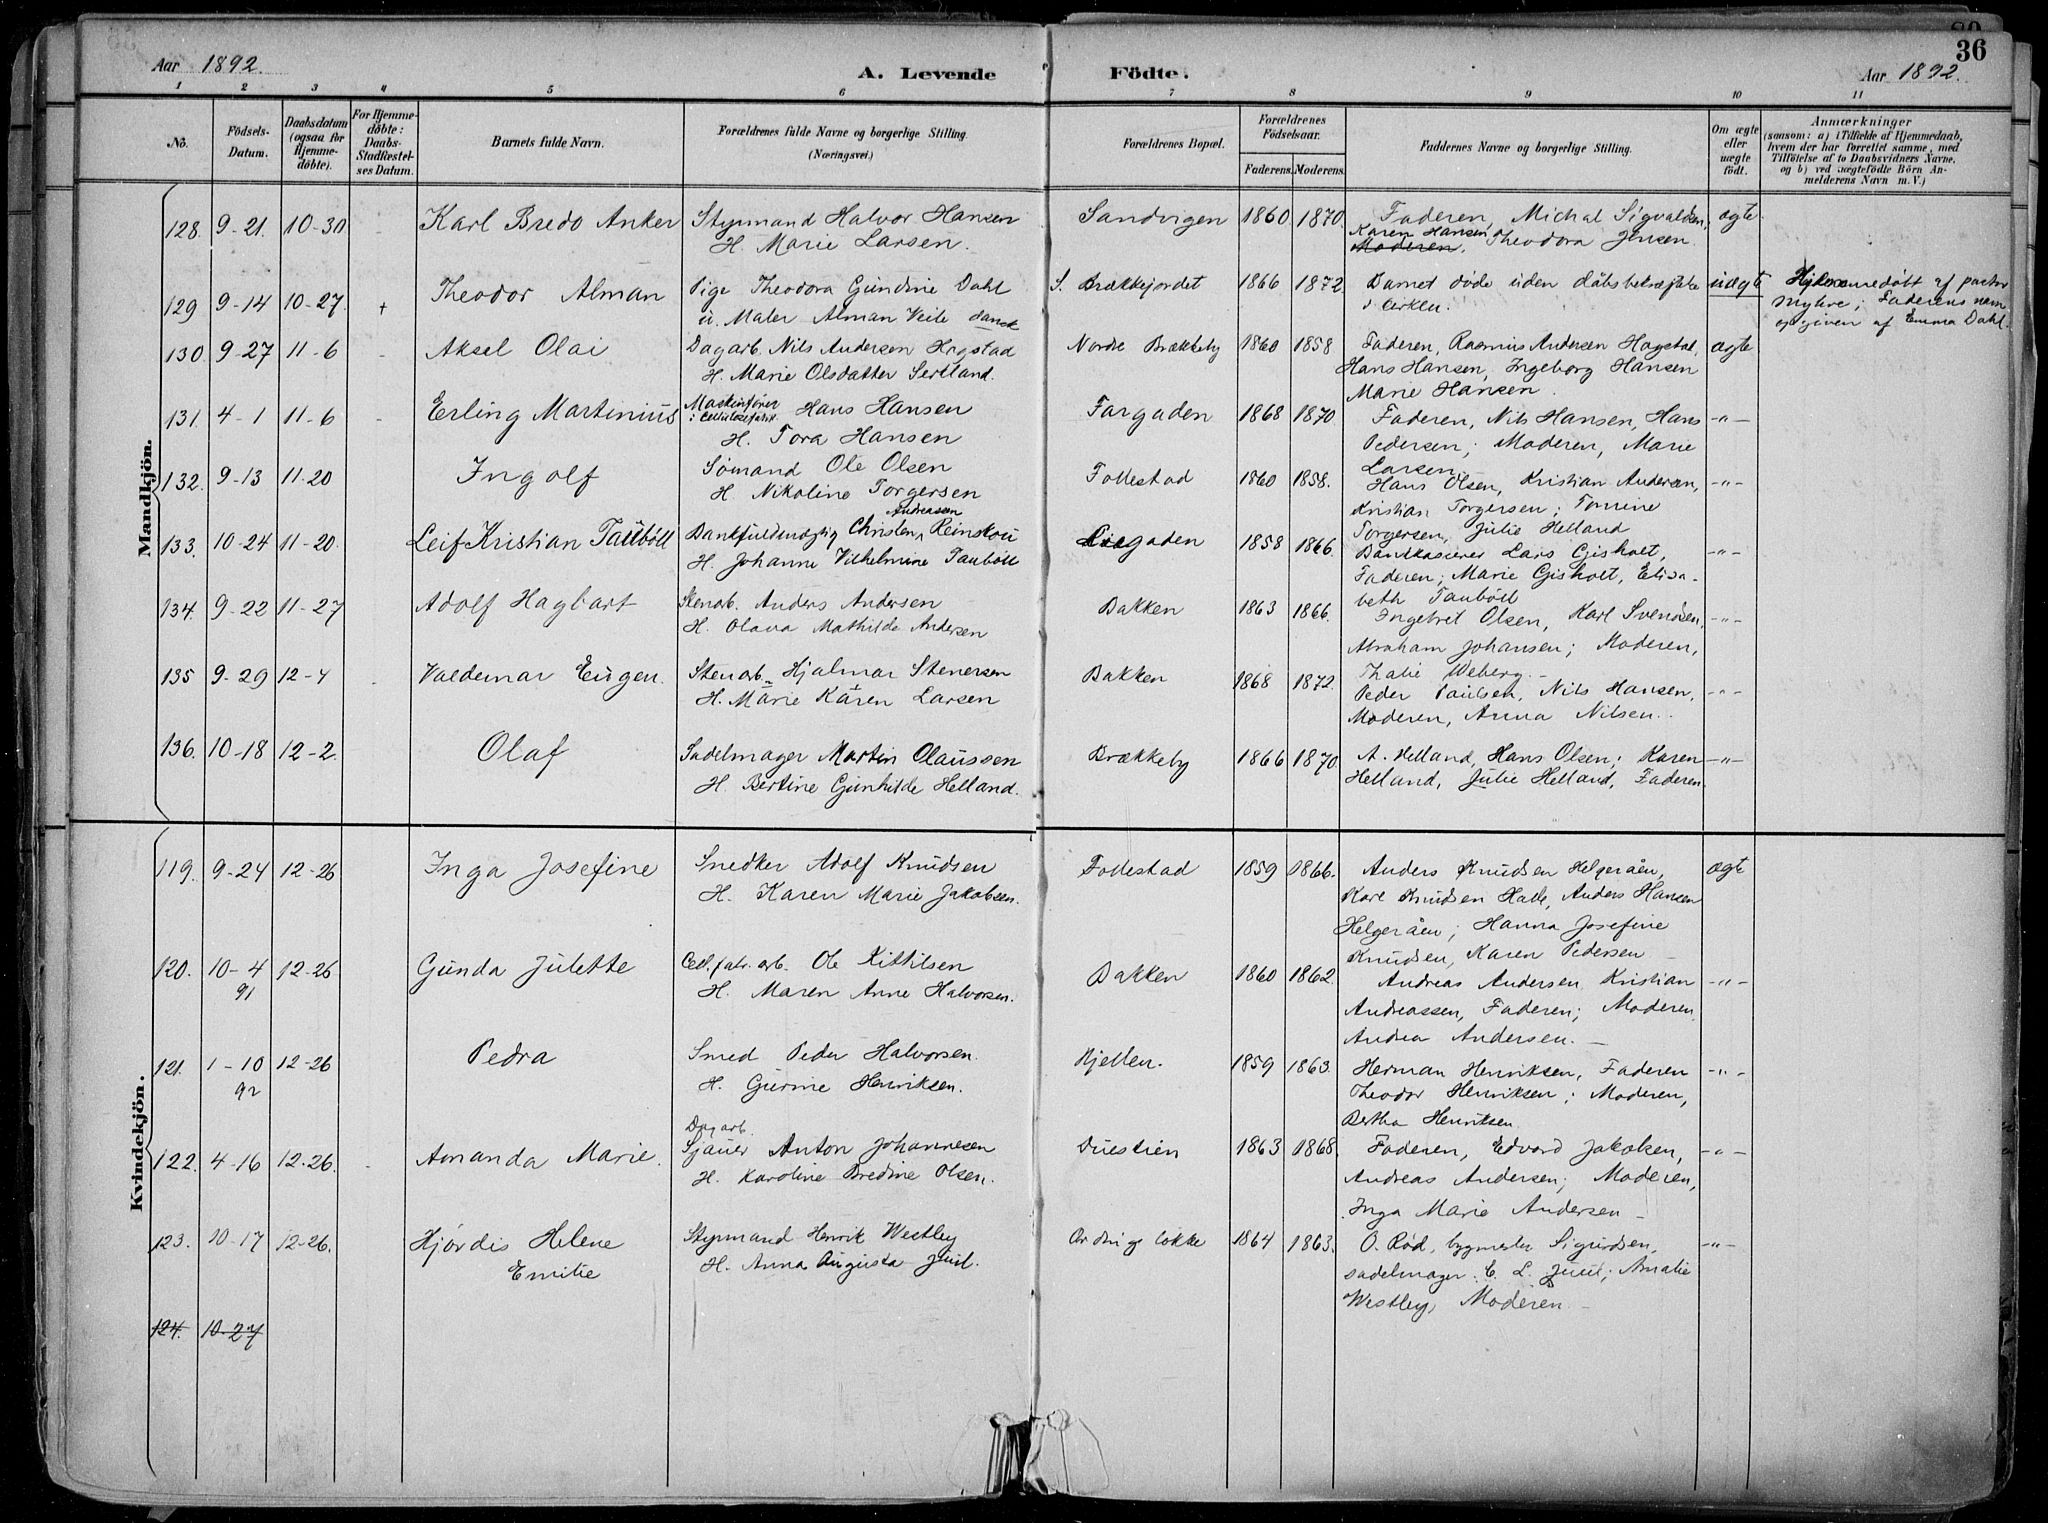 Aar 1892.
A. Levende Födte.
36
Aar 1892.
1 2 3 4 5 6 7 8 9 10 11
No.
Födsels-Datum.
Daabsdatum (ogsaa for Hjemme-döbte).
For Hjemme-döbte: Daabs-Stadfæstel-ses Datum.
Barnets fulde Navn.
Forældrenes fulde Navne og borgerlige Stilling. (Næringsvei.)
Forældrenes Bopæl.
Forældrenes Födselsaar.
Faderens. Moderens.
Faddernes Navne og borgerlige Stilling.
Om ægte eller uægte födt.
Anmærkninger
(saasom: a) i Tilfælde af Hjemmedaab,
hvem der har forrettet samme, med
Tilföielse af to Daabsvidners Navne,
og b) ved uægtefödte Börn An-
melderens Navn m. V.)
Mandkjön.
128. 9-21. 10-30 - Karl Bredo Anker Styrmand Halvor Hansen Sandvigen 1860 1870. Faderen, Michal Sigvaldsen, ægte.
H. Marie Larsen. Karen Hansen Moderen, Theodora Jensen.
129 9-14 10-27. + Theodor Alman Pige Theodora Gundine Dahl S. Brækkejordet 1866 1872 Barnet døde uden dåbsbekræftelse uægte Hjemmedøbt af pastor
u. Maler Alman Veile dansk i kirken. Myhre; Faderens navn
opgiven af Emma Dahl.
130 9-27 11-6 - Aksel Olai Dagarb. Nils Andersen Hogstad Nordre Brækkeby 1860 1858 Faderen, Rasmus Andersen Hogstad, ægte
H. Marie Olsdatter Sertland. Hans Hansen, Ingeborg Hansen
Marie Hansen.
131. 4-1 11-6 - Erling Martinius Maskinfører i Cellulosefabr. Hans Hansen Fargaden 1868 1870 Faderen, Nils Hansen, Hans -"-
H. Tora Hansen Pedersen; Moderen, Marie
Larsen.
132. 9-13 11-20 Ingolf Sömand Ole Olsen Follestad 1860 1858. Hans Olsen, Kristian Andersen, -"-
H. Nikoline Torgersen Kristian Torgersen; Tomine
Torgersen, Julie Helland
133. 10-24 11-20. Leif Kristian Taubøll Bankfuldmægtig Christen Andreassen Reinskou gaden 1858 1866. Bankkasierer Lars Gisholt, -"-
H. Johanne Vilhelmine Taubøll Faderen; Marie Gisholt, Elisa-
beth Taubøll
134. 9-22 11-27 Adolf Hagbart Stenarb. Anders Andersen Bakken 1863 1866. Ingebret Olsen, Karl Svendsen, -"-
H. Olava Mathilde Andersen Abraham Johansen; Moderen,
Thalie Weberg.-
135 9-29 12-4 Valdemar Eugen. Stenarb. Hjalmar Stenersen Bakken 1868 1872. Peder Paulsen, Nils Hansen, -"-
H. Marie Karen Larsen Moderen, Anna Nilsen.
136. 10-18 12-2. Olaf Sadelmager Martin Olaussen Brækkeby 1866 1870. A. Helland, Hans Olsen; Karen -"-
H. Bertine Gunhilde Helland. Helland, Julie Helland, Faderen.
Kvindekjön.
119. 9-24 12-26 Inga Josefine Snedker Adolf Knudsen Follestad 1859 1866. Anders Knudsen Helgeråen, ægte
H. Karen Marie Jakobsen. Karl Knudsen Halle, Anders Hansen
Helgeråen; Hanna Josefine
Knudsen, Karen Pedersen -
120. 10-4 91 12-26 Gunda Julette Cell.fabr.arb. Ole Kittilsen Bakken 1860 1862. Andreas Andersen, Kristian -"-
H. Maren Anne Halvorsen. Andreassen, Faderen; Moderen,
Andrea Andersen. -
121. 1-10 92 12-26 Pedra Smed Peder Halvorsen. Kjellen. 1859 1863. Herman Henriksen, Faderen -"-
H. Gurine Henriksen. Theodor Henriksen; Moderen,
Bertha Henriksen
122. 4-16 12-26. Amanda Marie. Dagarb. Sjauer Anton Johannesen Duestien 1863 1868. Faderen, Edvard Jakobsen, -"-
H. Karoline Bredine Olsen. Andreas Andersen; Moderen,
Inga Marie Andersen -
123. 10-17 12-26. Hjørdis Helene Emilie Styrmand Henrik Westley løkke 1864 1863. O. Rød, bygmester Sigurdsen, -"-
H. Anna Augusta Juul. sadelmager C. L. Juul; Amalie
Westley, Moderen -
124. 10-27